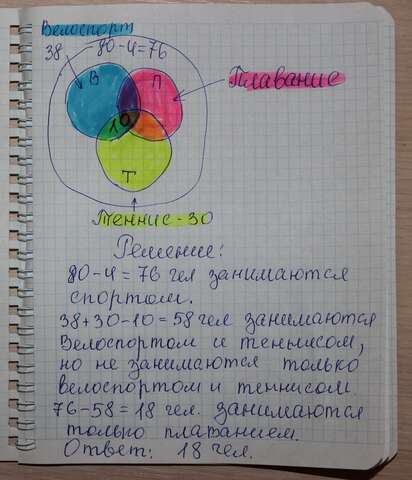 Велоспорт
38 80-4=76
В П
Плавание
10
Т
Теннис-30
Решение:
80-4=76 чел занимаются
спортом.
38+30-10=58 чел занимаются
Велоспортом и теннисом,
но не занимаются только
велоспортом и теннисом.
76-58=18 чел. занимаются
только плаванием.
Ответ: 18 чел.